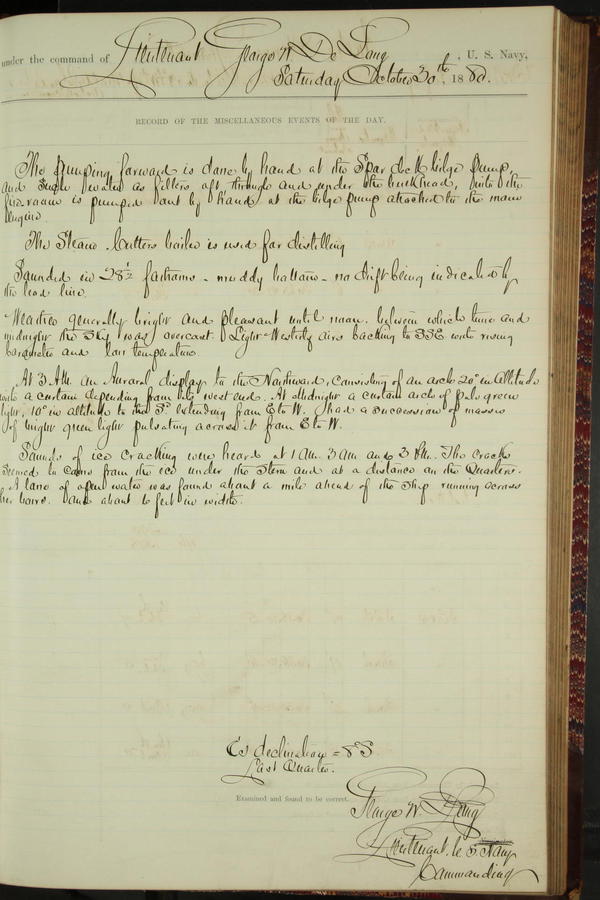 under the command of Lieutenant George W. De Long, U. S. Navy,
Saturday October 30th, 1880.
RECORD OF THE MISCELLANEOUS EVENTS OF THE DAY.
The pumping forward is done by hand at the Spar deck bilge pump,
and such water as filters aft, through and under the bulkhead, into the
fireroom is pumped out by hand at the bilge pump attached to the main
engine.
The Steam Cutters boiler is used for distilling
Sounded in 28½ fathoms - muddy bottom - no drift being indicated by
the lead line.
Weather generally bright and pleasant until noon. between which time and
midnight the sky was overcast. Light Westerly airs backing to SSE with rising
barometer and low temperature.
At 3 AM. an Auroral display to the Northward, consisting of an arch 20° in altitude
with a curtain depending from its west end. At midnight a curtain arch of pale green
light, 10° in altitude to the Sd extending from E to W. had a succession of masses
of bright green light pulsating across it from E to W.
Sounds of ice cracking were heard at 1 AM. 3 AM and 3 PM. The cracks
seemed to come from the ice under the Stern and at a distance on the Quarters.
A lane of open water was found about a mile ahead of the ship running across
her bows. and about 6 feet in width.
declination = 8° S.
Last Quarter.
Examined and found to be correct.
George W. De Long
Lieutenant, U. S. Navy
Commanding